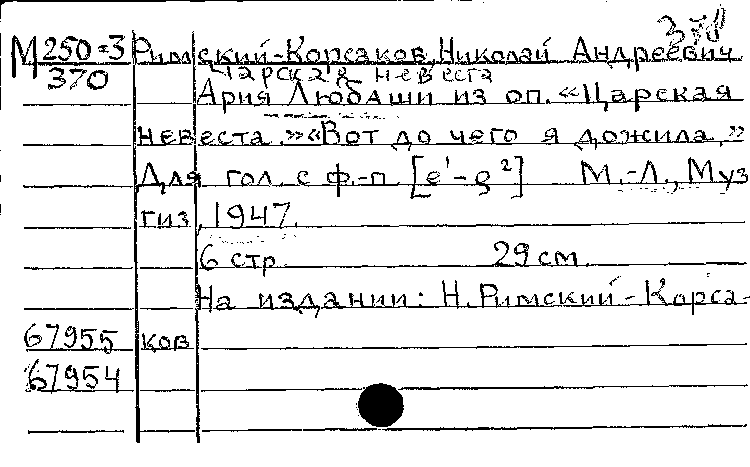 378
М 250-3 Римский-Корсаков, Николай Андреевич
370 Царская невеста
Ария Любаши из оп. «Царская
невеста.» «Вот до чего я дожила.»
Для гол. с ф.-п. [e¹-g²] М.-Л., Муз
гиз, 1947.
6 стр. 29 см.
На издании: Н. Римский-Корса-
67955 ков
67954